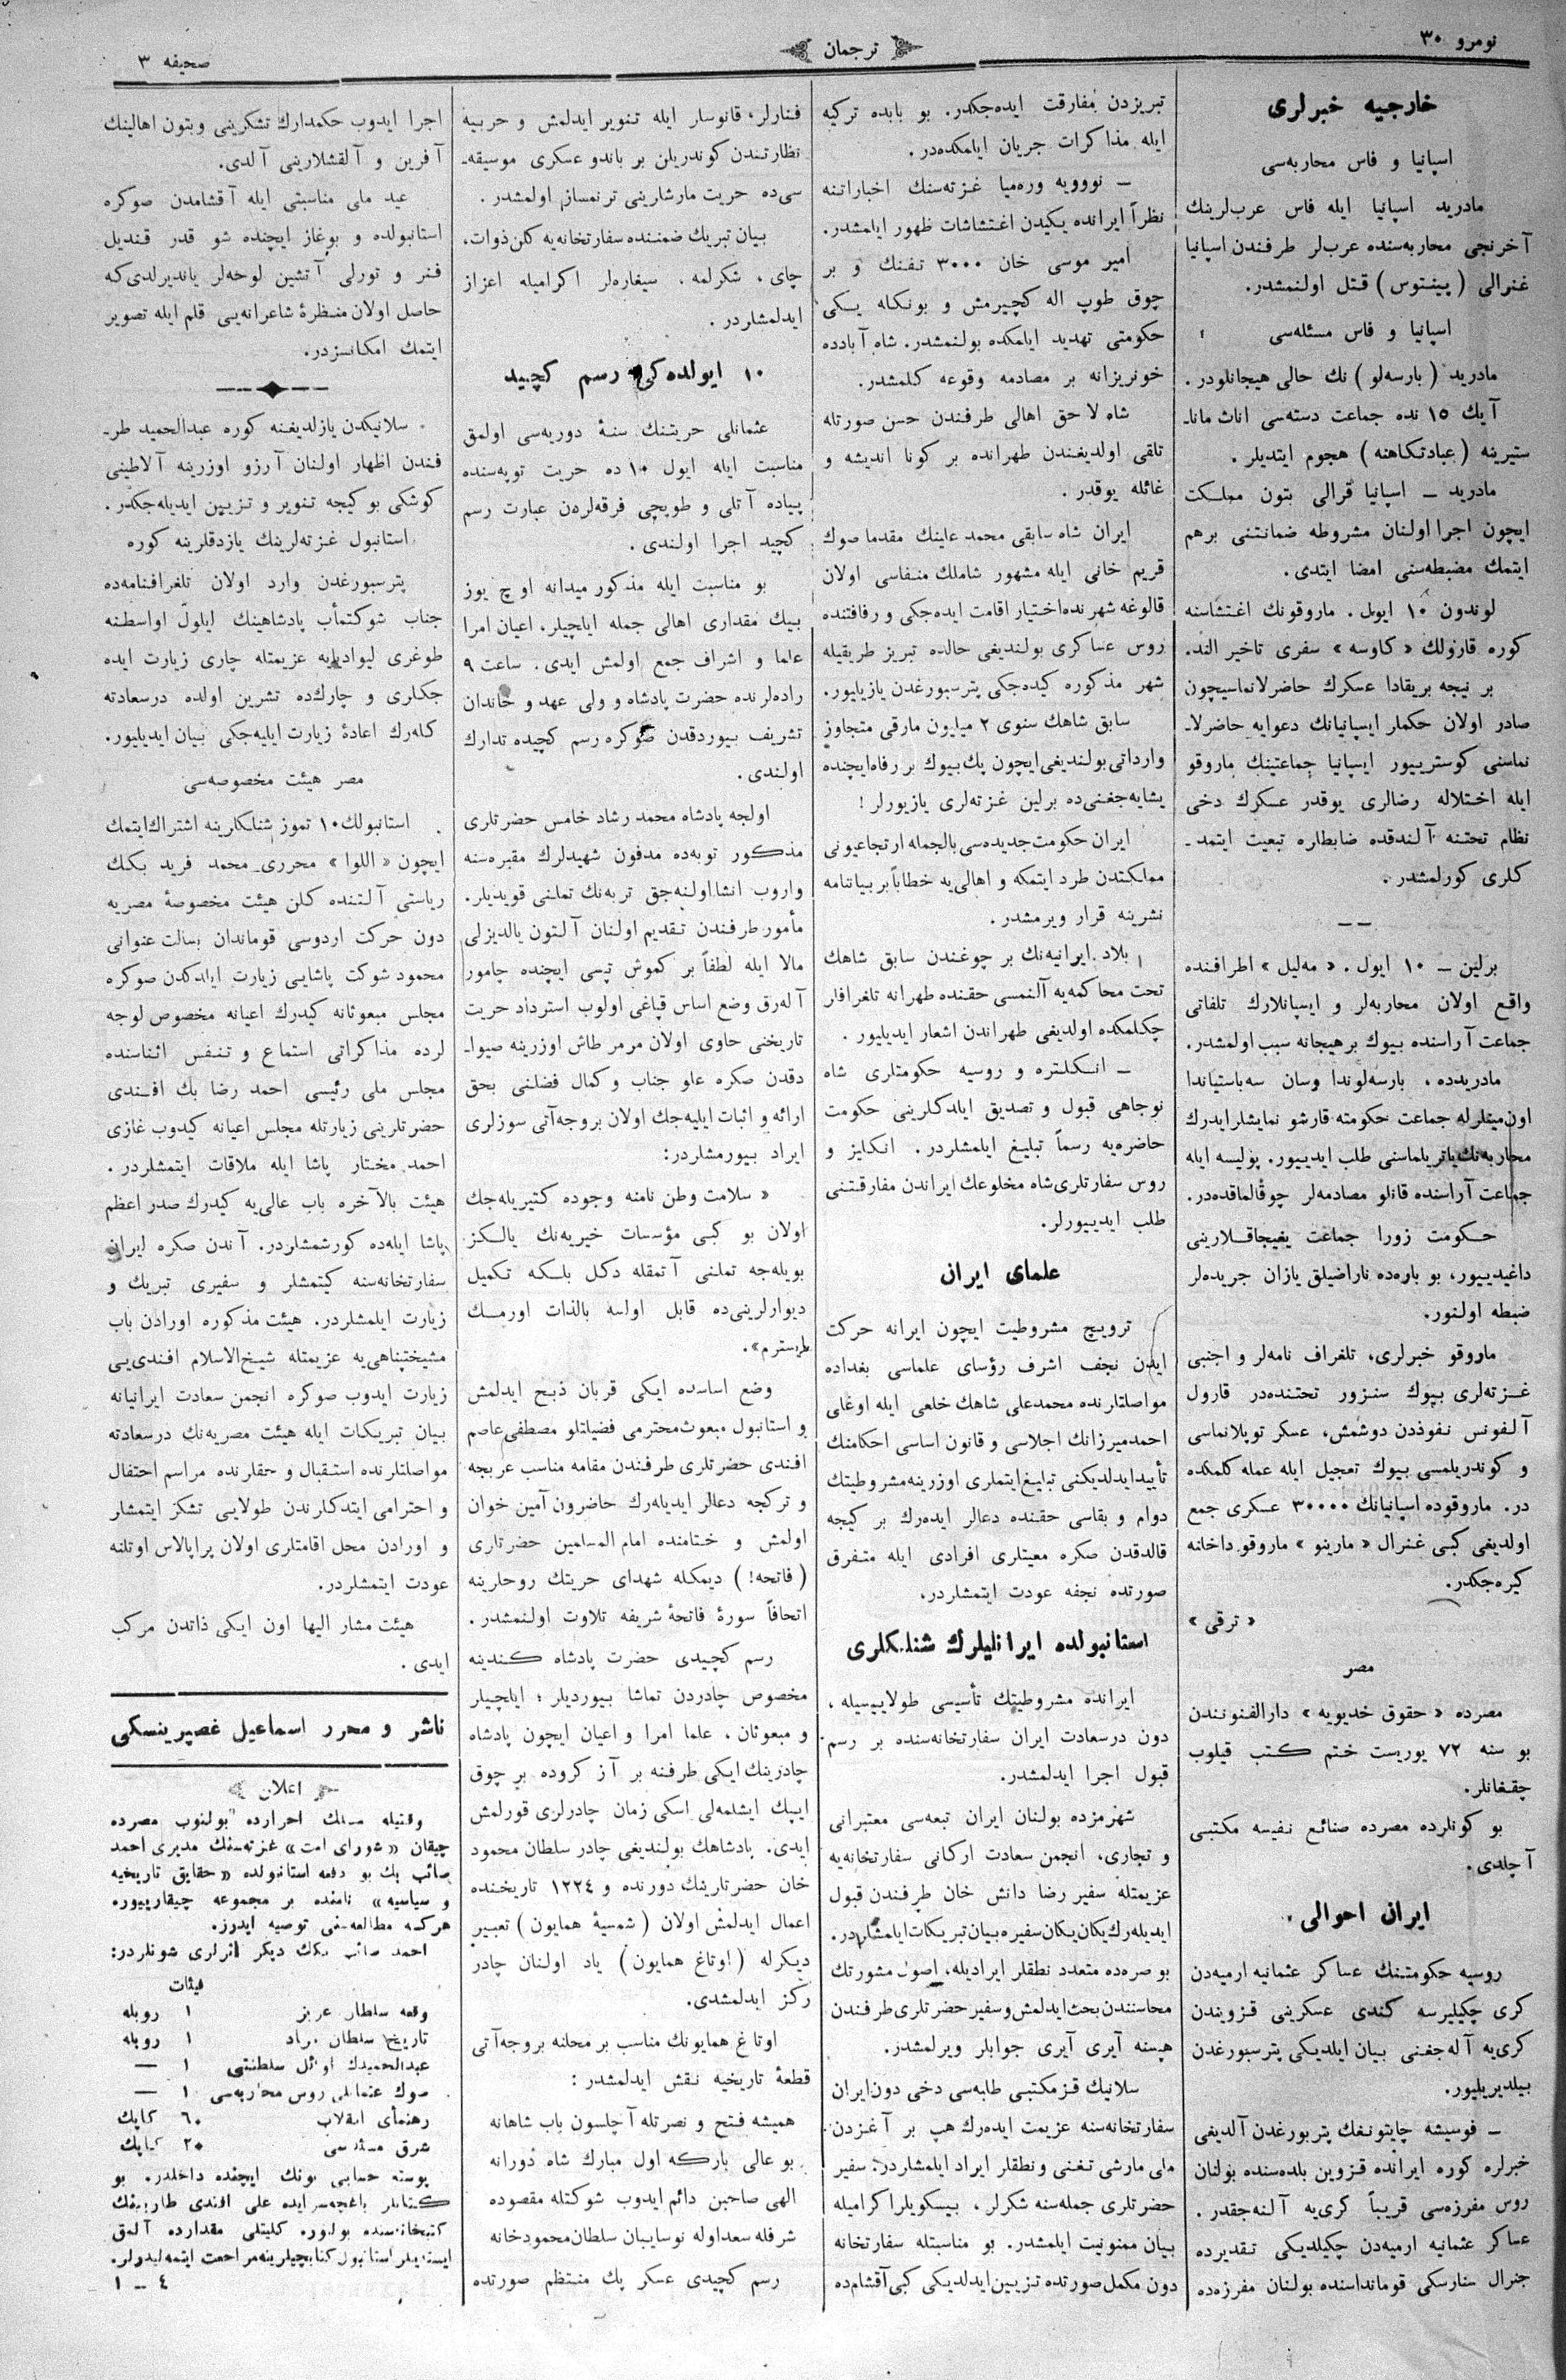 نومرو ٣٠
ترجمان
صحیفه ٣
خارجیه خبرلری
اسپانیا و فاس محاربه‌سی
مادرید اسپانیا ایله فاس عرب‌لرینك
آخرنجی محاربه‌سنده عرب‌لر طرفندن اسپانیا
غنرالی (پینتوس) قتل اولنمشدر.
اسپانیا و فاس مسئله‌سی
مادرید (بارسه‌لو) نك حالی هیجانلودر.
آیك ١٥ نده جماعت دسته‌سی اناث مانا-
ستیرینه (عبادتکاهنه) هجوم ایتدیلر.
مادرید – اسپانیا قرالی بتون مملکت
ایچون اجرا اولنان مشروطه ضمانتنی برهم
ایتمك مضبطه‌سنی امضا ایتدی.
لوندون ١٠ ایول. ماروقونك اغتشاسنه
کوره قارولك «کاوسه» سفری تاخیر الند.
بر نیجه بریقادا عسکرك حاضرلانماسیچون
صادر اولان حکملر ایسپانیانك دعوایه حاضرلا-
نماسنی کوسترییور ایسپانیا جماعتینك ماروقو
ایله اختلاله رضالری یوقدر عسکرك دخی
نظام تحتنه آلندقده ضابطلره تبعیت ایتمد-
کلری کورلمشدر.
برلین – ١٠ ایول. «مه‌لیل» اطرافنده
واقع اولان محاربه‌لر و ایسپانلارك تلفاتی
جماعت آراسنده بیوك بر هیجانه سبب اولمشدر.
مادریدده، بارسه‌لوندا وسان سه‌باستیاندا
اون میتلرله جماعت حکومته قارشو نمایشلر ایدرك
محاربه‌نك یاتریلماسنی طلب ایدییور. پولیسه ایله
جماعت آراسنده قانلو مصادمه‌لر چوقالماقده‌در.
حکومت زورا جماعت یغیجاقلارینی
داغیدییور، بو باره‌ده ناراضیلق یازان جریده‌لر
ضبطه اولنور.
ماروقو خبرلری، تلغراف نامه‌لر و اجنبی
غزته‌لری بیوك سنزور تحتنده‌در قارول
آلفونس نفوذدن دوشمش، عسکر توپلانماسی
و کوندریلمسی بیوك تعجیل ایله عمله کلمکده
در. ماروقوده اسپانیانك ٣٠٠٠٠ عسکری جمع
اولدیغی کبی غنرال «مارینو» ماروقو داخلنه
کیره‌جکدر.
«ترقی»
مصر
مصرده «حقوق خدیویه» دارالفنونندن
بو سنه ٧٢ یوریست ختم کتب قیلوب
چقغانلر.
بو کونلرده مصرده صنائع نفیسه مکتبی
آچلدی.
ایران احوالی
روسیه حکومتنك عساکر عثمانیه ارمیه‌دن
کری چکیلیرسه کندی عسکرینی قزویندن
کری‌یه آله‌جغنی بیان ایلدیکی پترسبورغدن
بیلدیریلیور.
– فوسیشه چایتونغك پتربورغدن آلدیغی
خبرلره کوره ایرانده قزوین بلده‌سنده بولنان
روس مفرزه‌سی قریباً کری‌یه آلنه‌جقدر.
عساکر عثمانیه ارمیه‌دن چکیلدیکی تقدیرده
جنرال سنارسکی قوماندا‌سنده بولنان مفرزه‌ده
تبریزدن مفارقت ایده‌جکدر. بو بابده ترکیه
ایله مذاکرات جریان ایلمکده‌در.
– نوویه وره‌میا غزته‌سنك اخباراتنه
نظراً ایرانده یکیدن اغتشاشات ظهور ایلمشدر.
امیر موسی خان ٣٠٠٠ تفنك و بر
چوق طوپ اله کچیرمش و بونکله یکی
حکومتی تهدید ایلمکده بولنمشدر. شاه آبادده
خونریزانه بر مصادمه وقوعه کلمشدر.
شاه لاحق اهالی طرفندن حسن صورتله
تلقی اولدیغندن طهرانده بر کونا اندیشه و
غائله یوقدر.
ایران شاه سابقی محمد علینك مقدما صوك
قریم خانی ایله مشهور شاملك منفاسی اولان
قالوغه شهرنده اختیار اقامت ایده‌جکی و رفاقتنده
روس عساکری بولندیغی حالده تبریز طریقیله
شهر مذکوره کیده‌جکی پترسبورغدن یازیلیور.
سابق شاهك سنوی ٢ میلیون مارقی متجاوز
وارداتی بولندیغی ایچون پك بیوك بر رفاه ایچنده
یشایه‌جغنی ده برلین غزته‌لری یازیورلر!
ایران حکومت جدیده‌سی بالجمله ارتجاعیونی
مملکتدن طرد ایتمکه و اهالی‌یه خطاباً بر بیاننامه
نشرینه قرار ویرمشدر.
بلاد ایرانیه‌نك بر چوغندن سابق شاهك
تحت محاکمه‌یه آلنمسی حقنده طهرانه تلغرافلر
چکلمکده اولدیغی طهراندن اشعار ایدیلیور.
– انکلتره و روسیه حکومتلری شاه
نوجاهی قبول و تصدیق ایلدکلرینی حکومت
حاضره‌یه رسماً تبلیغ ایلمشلردر. انکلیز و
روس سفارتلری شاه مخلوعك ایراندن مفارقتنی
طلب ایدییورلر.
علمای ایران
ترویج مشروطیت ایچون ایرانه حرکت
ایدن نجف اشرف رؤسای علماسی بغداده
مواصلتلرنده محمدعلی شاهك خلعی ایله اوغلی
احمدمیرزانك اجلاسی و قانون اساسی احکامنك
تأیید ایدلدیکنی تبلیغ ایتملری اوزرینه مشروطیتك
دوام و بقاسی حقنده دعالر ایده‌رك بر کیجه
قالدقدن صکره معیتلری افرادی ایله متفرق
صورتده نجفه عودت ایتمشلردر.
استانبولده ایرانلیلرك شنلکلری
ایرانده مشروطیتك تأسیسی طولاییسیله،
دون درسعادت ایران سفارتخانه‌سنده بر رسم
قبول اجرا ایدلمشدر.
شهرمزده بولنان ایران تبعه‌سی معتبرانی
و تجاری، انجمن سعادت ارکانی سفارتخانه‌یه
عزیمتله سفیر رضا دانش خان طرفندن قبول
ایدیله‌رك یکان یکان سفیره بیان تبریکات ایلمشلردر.
بو صره‌ده متعدد نطقلر ایرادیله، اصول مشورتك
محاسنندن بحث ایدلمش و سفیر حضرتلری طرفندن
هپسنه آیری آیری جوابلر ویرلمشدر.
سلانیك قز مکتبی طلبه‌سی دخی دون ایران
سفارتخانه‌سنه عزیمت ایده‌رك هپ بر آغزدن
ملی مارشی تغنی و نطقلر ایراد ایلمشلردر. سفیر
حضرتلری جمله‌سنه شکرلر، بیسکویلر اکرامیله
بیان ممنونیت ایلمشدر. بو مناسبتله سفارتخانه
دون مکمل صورتده تزیین ایدلدیکی کبی آقشام ده
فنارلر، فانوسلر ایله تنویر ایدلمش و حربیه
نظارتندن کوندریلن بر باندو عسکری موسیقه-
سی‌ده حریت مارشلرینی ترنمساز اولمشدر.
بیان تبریك ضمننده سفارتخانه‌یه کلن ذوات،
چای، شکرلمه، سیغاره‌لر اکرامیله اعزاز
ایدلمشلردر.
١٠ ایولده‌کی رسم کچید
عثمانلی حریتنك سنۀ دوریه‌سی اولمق
مناسبت ایله ایول ١٠ ده حریت توپه‌سنده
پیاده آتلی و طوپچی فرقه‌لردن عبارت رسم
کچید اجرا اولندی.
بو مناسبت ایله مذکور میدانه اوچ یوز
بیك مقداری اهالی جمله ایلچیلر، اعیان امرا
علما و اشراف جمع اولمش ایدی. ساعت ٩
راده‌لرنده حضرت پادشاه و ولی عهد و خاندان
تشریف بیوردقدن صوکره رسم کچیده تدارك
اولندی.
اولجه پادشاه محمد رشاد خامس حضرتلری
مذکور توبه‌ده مدفون شهیدلرك مقبره‌سنه
واروب انشا اولنه‌جق تربه‌نك تملنی قویدیلر.
مأمور طرفندن تقدیم اولنان آلتون یالدیزلی
مالا ایله لطفاً بر کموش تپسی ایچنده چامور
آله‌رق وضع اساس قپاغی اولوب استرداد حریت
تاریخنی حاوی اولان مرمر طاش اوزرینه صیوا-
دقدن صکره علو جناب و کمال فضلنی بحق
ارائه و اثبات ایلیه‌جك اولان بروجه آتی سوزلری
ایراد بیورمشلردر:
«سلامت وطن نامنه وجوده کتیریله‌جك
اولان بو کبی مؤسسات خیریه‌نك یالکز
بویله‌جه تملنی آتمقله دکل بلکه تکمیل
دیوارلرینی‌ده قابل اولسه بالذات اورمك
ایسترم».
وضع اساسده ایکی قربان ذبح ایدلمش
و استانبول مبعوث محترمی فضیلتلو مصطفی عاصم
افندی حضرتلری طرفندن مقامه مناسب عربجه
و ترکجه دعالر ایدیله‌رك حاضرون آمین خوان
اولمش و ختامنده امام المسلمین حضرتلری
(فاتحه!) دیمکله شهدای حریتك روحلرینه
اتحافاً سورۀ فاتحۀ شریفه تلاوت اولنمشدر.
رسم کچیدی حضرت پادشاه کندینه
مخصوص چادردن تماشا بیوردیلر؛ ایلچیلر
و مبعوثان، علما امرا و اعیان ایچون پادشاه
چادرینك ایکی طرفنه بر آز کروده بر چوق
ایپك ایشلمه‌لی اسکی زمان چادرلری قورلمش
ایدی. پادشاهك بولندیغی چادر سلطان محمود
خان حضرتلرینك دورنده و ١٢٢٤ تاریخنده
اعمال ایدلمش اولان (شمسیۀ همایون) تعبیر
دیکرله (اوتاغ همایون) یاد اولنان چادر
رکز ایدلمشدی.
اوتاغ همایونك مناسب بر محلنه بروجه آتی
قطعۀ تاریخیه نقش ایدلمشدر:
همیشه فتح و نصرتله آچلسون باب شاهانه
بو عالی بارکه اول مبارك شاه دورانه
الهی صاحبن دائم ایدوب شوکتله مقصوده
شرفله سعد اوله نوسایبان سلطان محمودخانه
رسم کچیدی عسکر پك منتظم صورتده
اجرا ایدوب حکمدارك تشکرینی و بتون اهالینك
آفرین و آلقشلارینی آلدی.
عید ملی مناسبتی ایله آقشامدن صوکره
استانبولده و بوغاز ایچنده شو قدر قندیل
فنر و تورلی آتشین لوحه‌لر یاندیرلدی‌که
حاصل اولان منظرۀ شاعرانه‌یی قلم ایله تصویر
ایتمك امکانسزدر.
سلانیکدن یازلدیغنه کوره عبدالحمید طر-
فندن اظهار اولنان آرزو اوزرینه آلاطینی
کوشکی بو کیجه تنویر و تزیین ایدیله‌جکدر.
استانبول غزته‌لرینك یازدقلرینه کوره
پترسبورغدن وارد اولان تلغرافنامه‌ده
جناب شوکتمأب پادشاهینك ایلول اواسطنه
طوغری لیوادیایه عزیمتله چاری زیارت ایده
جکلری و چارك‌ده تشرین اولده درسعادته
کله‌رك اعادۀ زیارت ایلیه‌جکی بیان ایدیلیور.
مصر هیئت مخصوصه‌سی
استانبولك ١٠ تموز شنلکلرینه اشتراك ایتمك
ایچون «اللوا» محرری محمد فرید بکك
ریاستی آلتنده کلن هیئت مخصوصۀ مصریه
دون حرکت اردوسی قوماندان بسالت عنوانی
محمود شوکت پاشایی زیارت ایلدکدن صوکره
مجلس مبعوثانه کیدرك اعیانه مخصوص لوجه
لرده مذاکراتی استماع و تنفس اثناسنده
مجلس ملی رئیسی احمد رضا بك افندی
حضرتلرینی زیارتله مجلس اعیانه کیدوب غازی
احمد مختار پاشا ایله ملاقات ایتمشلردر.
هیئت بالآخره باب عالی‌یه کیدرك صدر اعظم
پاشا ایله‌ده کورشمشلردر. آندن صکره ایران
سفارتخانه‌سنه کیتمشلر و سفیری تبریك و
زیارت ایلمشلردر. هیئت مذکوره اورادن باب
مشیختپناهی‌یه عزیمتله شیخ‌الاسلام افندی‌یی
زیارت ایدوب صوکره انجمن سعادت ایرانیانه
بیان تبریکات ایله هیئت مصریه‌نك درسعادته
مواصلتلرنده استقبال و حقلرنده مراسم احتفال
و احترامی ایتدکلرندن طولایی تشکر ایتمشلر
و اورادن محل اقامتلری اولان پراپالاس اوتلنه
عودت ایتمشلردر.
هیئت مشار الیها اون ایکی ذاتدن مرکب
ایدی.
ناشر و محرر اسماعیل غصپرینسکی
اعلان
وقتیله مسلك احرارده بولنوب مصرده
چیقان «شورای امت» غزته‌سنك مدیری احمد
صائب بك بو دفعه استانبولده «حقایق تاریخیه
و سیاسیه» نامنده بر مجموعه چیقارییور.
هرکسه مطالعه‌سنی توصیه ایدرز.
احمد صائب بکك دیکر اثرلری شونلردر:
فیئات
وقعه سلطان عزیز ١ روبله
تاریخ سلطان مراد ١ روبله
عبدالحمیدك اوائل سلطنتی ١ —
صوك عثمانلی روس محاربه‌سی ١ —
رهنمای انقلاب ٦٠ کاپك
شرق مسئله‌سی ٢٠ کاپك
پوسته حسابی بونك ایچنده داخلدر. بو
کتابلر باغچه‌سرایده علی افندی طارپینك
کتبخانه‌سنده بولنور. کلیتلی مقدارده آلمق
ایستینلر استانبول کتابچیلرینه مراجعت ایتمه‌لیدرلر.
٤ – ١